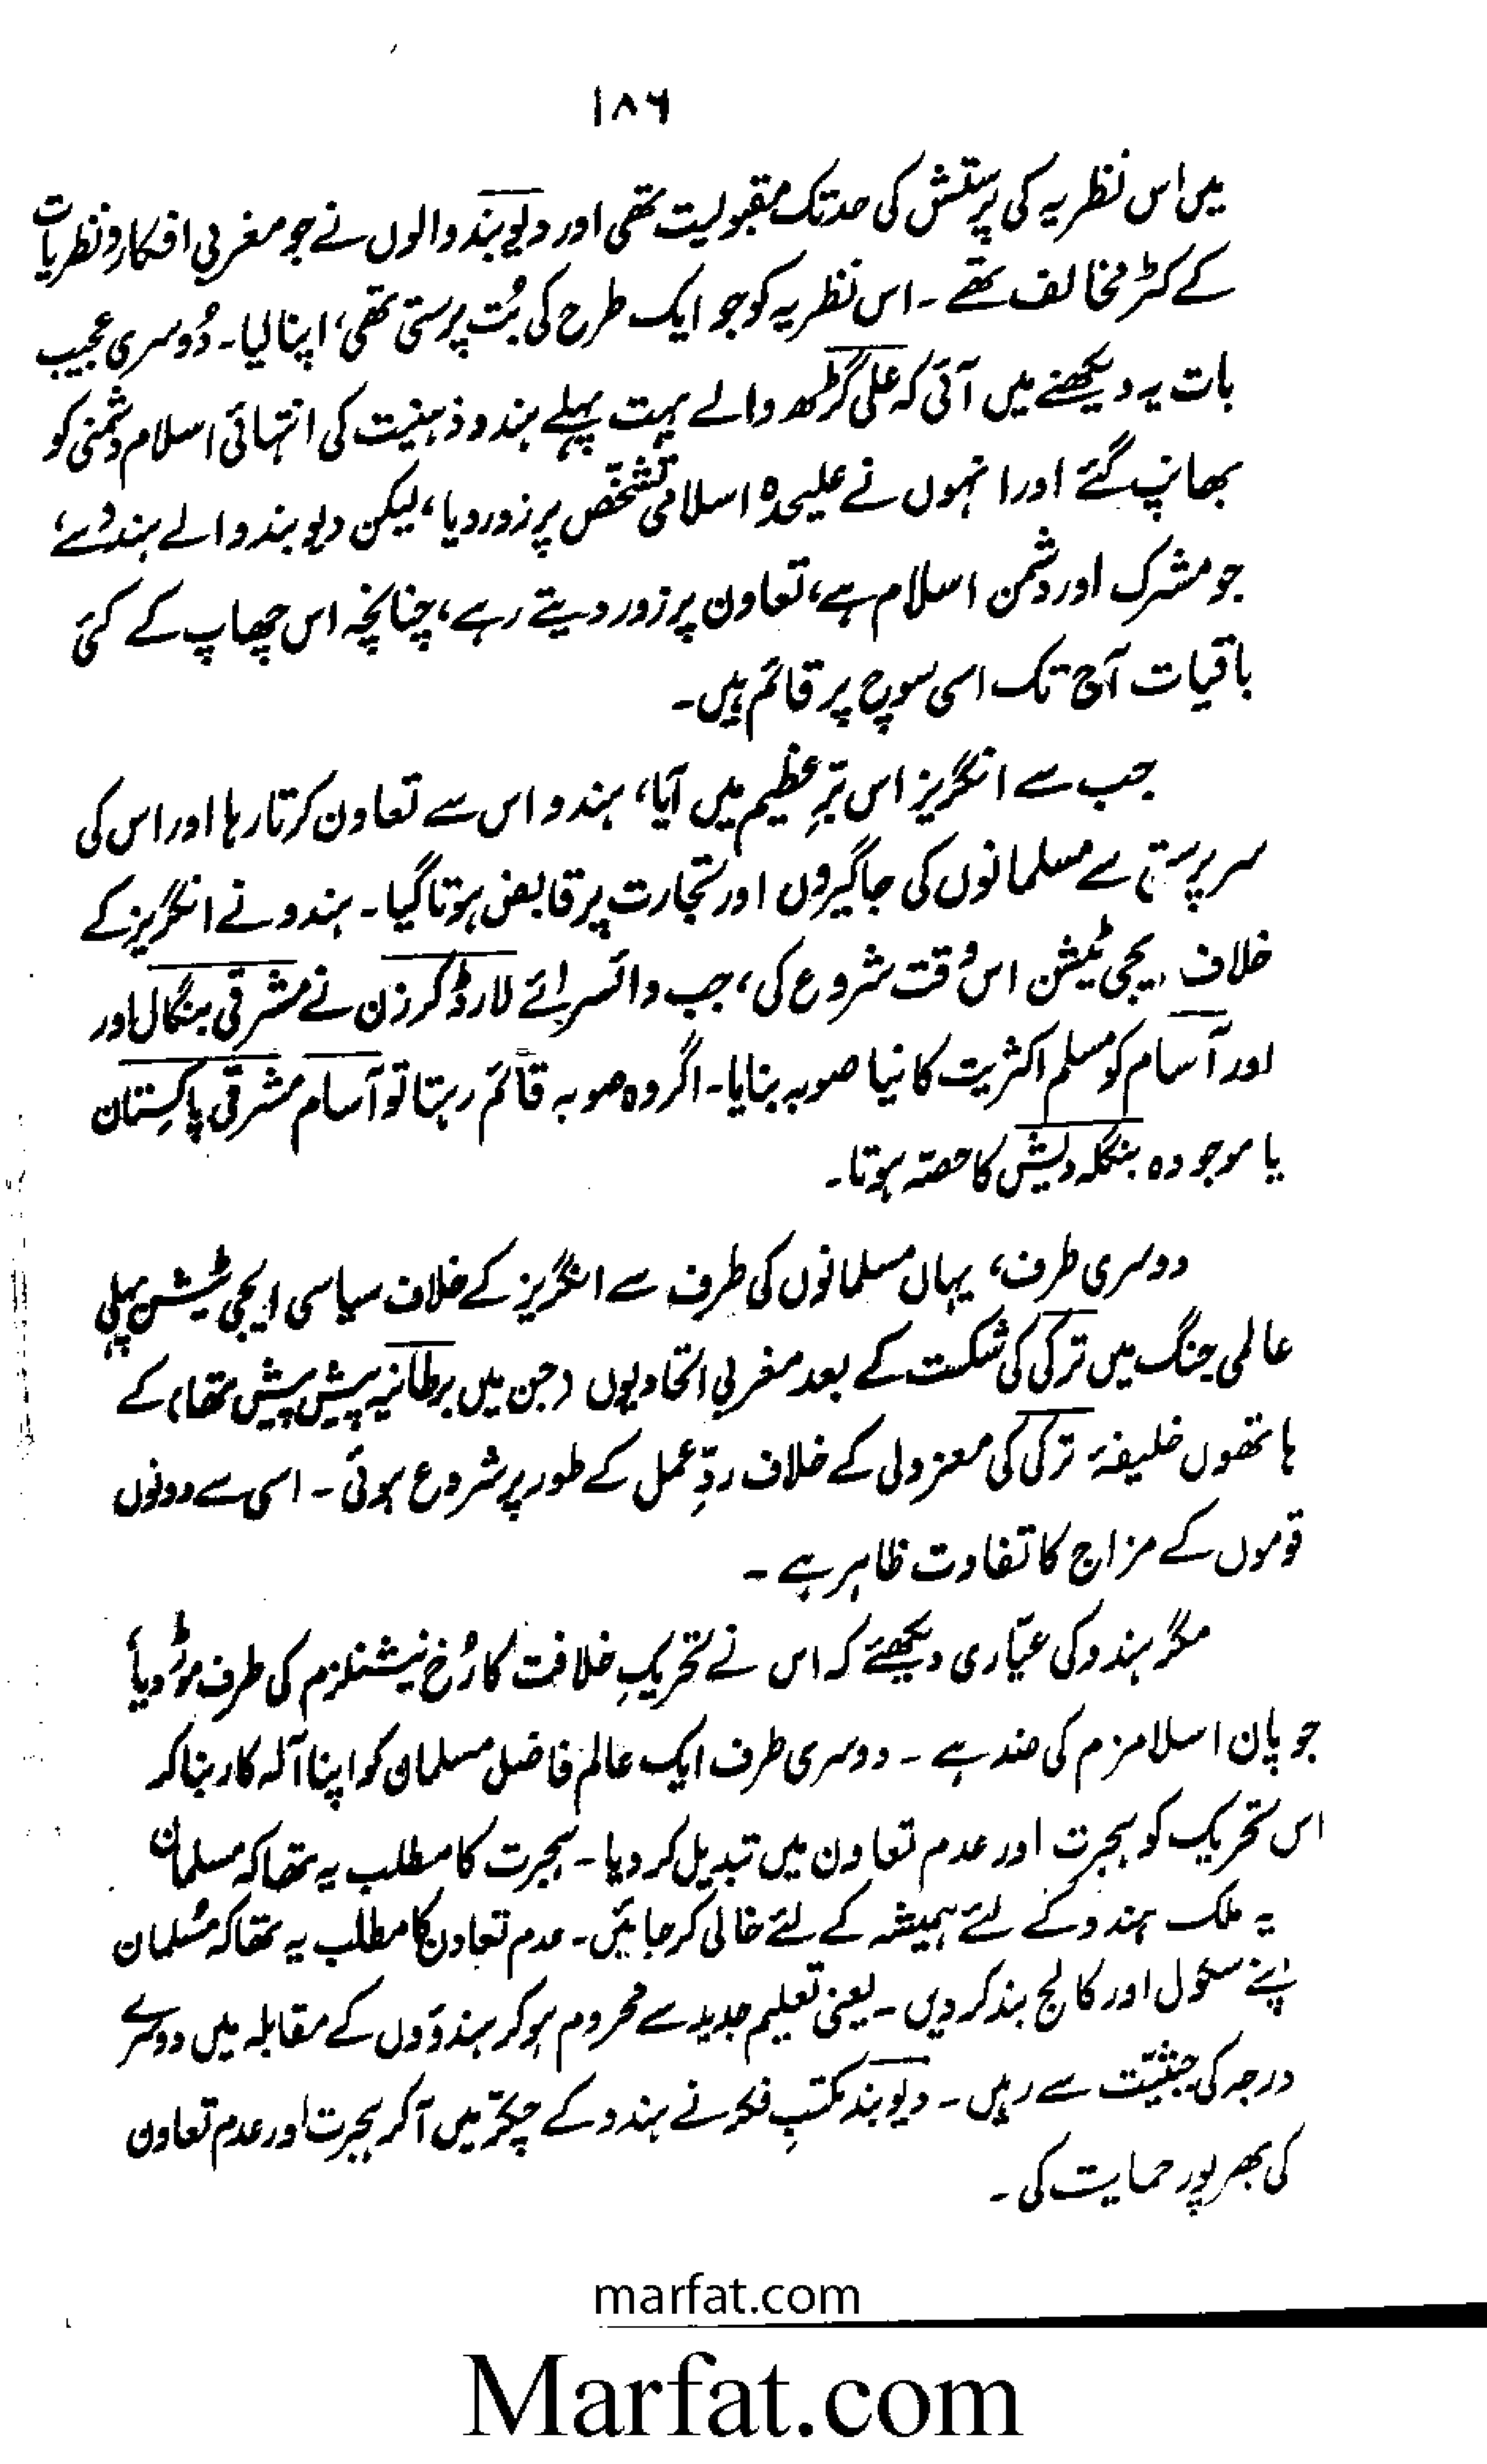 ۱۸۶
میں اس نظریہ کی پرستش کی حد تک مقبولیت تھی اور دیوبند والوں نے جو مغربی افکار و نظریات
کے کٹر مخالف تھے ۔ اس نظریہ کو جو ایک طرح کی بُت پرستی تھی، اپنا لیا۔ دُوسری عجیب
بات یہ دیکھنے میں آئی کہ علی گڑھ والے بہت پہلے ہندو ذہنیت کی انتہائی اسلام دشمنی کو
بھانپ گئے اور انہوں نے علیحدہ اسلامی تشخّص پر زور دیا، لیکن دیوبند والے ہندو سے،
جو مشرک اور دشمن اسلام ہے، تعاون پر زور دیتے رہے، چنانچہ اس چھاپ کے کئی
باقیات آج تک اسی سوچ پر قائم ہیں۔
جب سے انگریز اس برِّ عظیم میں آیا، ہندو اس سے تعاون کرتا رہا اور اس کی
سرپرستی سے مسلمانوں کی جاگیروں اور تجارت پر قابض ہوتا گیا۔ ہندو نے انگریز کے
خلاف ایجی ٹیشن اس وقت شروع کی، جب وائسرائے لارڈ کرزن نے مشرقی بنگال اور
اور آسام کو مسلم اکثریت کا نیا صوبہ بنایا۔ اگر وہ صوبہ قائم رہتا تو آسام مشرقی پاکستان
یا موجودہ بنگلہ دیش کا حصّہ ہوتا۔
دوسری طرف، یہاں مسلمانوں کی طرف سے انگریز کے خلاف سیاسی ایجی ٹیشن پہلی
عالمی جنگ میں ترکی کی شکست کے بعد مغربی اتحادیوں (جن میں برطانیہ پیش پیش تھا) کے
ہاتھوں خلیفۂ ترکی کی معزولی کے خلاف ردِّ عمل کے طور پر شروع ہوئی ۔ اسی سے دونوں
قوموں کے مزاج کا تفاوت ظاہر ہے ۔
مگر ہندو کی عیّاری دیکھئے کہ اس نے تحریکِ خلافت کا رُخ نیشنلزم کی طرف موڑ دیا
جو پان اسلامزم کی ضد ہے ۔ دوسری طرف ایک عالم فاضل مسلمان کو اپنا آلہ کار بنا کر
اس تحریک کو ہجرت اور عدم تعاون میں تبدیل کر دیا ۔ ہجرت کا مطلب یہ تھا کہ مسلمان
یہ ملک ہندو کے لئے ہمیشہ کے لئے خالی کر جائیں۔ عدم تعاون کا مطلب یہ تھا کہ مُسلمان
اپنے سکول اور کالج بند کر دیں ۔ یعنی تعلیم جدید سے محروم ہو کر ہندؤوں کے مقابلہ میں دوسرے
درجہ کی حیثیّت سے رہیں ۔ دیوبند مکتبِ فکر نے ہندو کے چکّر میں آ کر ہجرت اور عدم تعاون
کی بھرپور حمایت کی ۔
marfat.com
Marfat.com